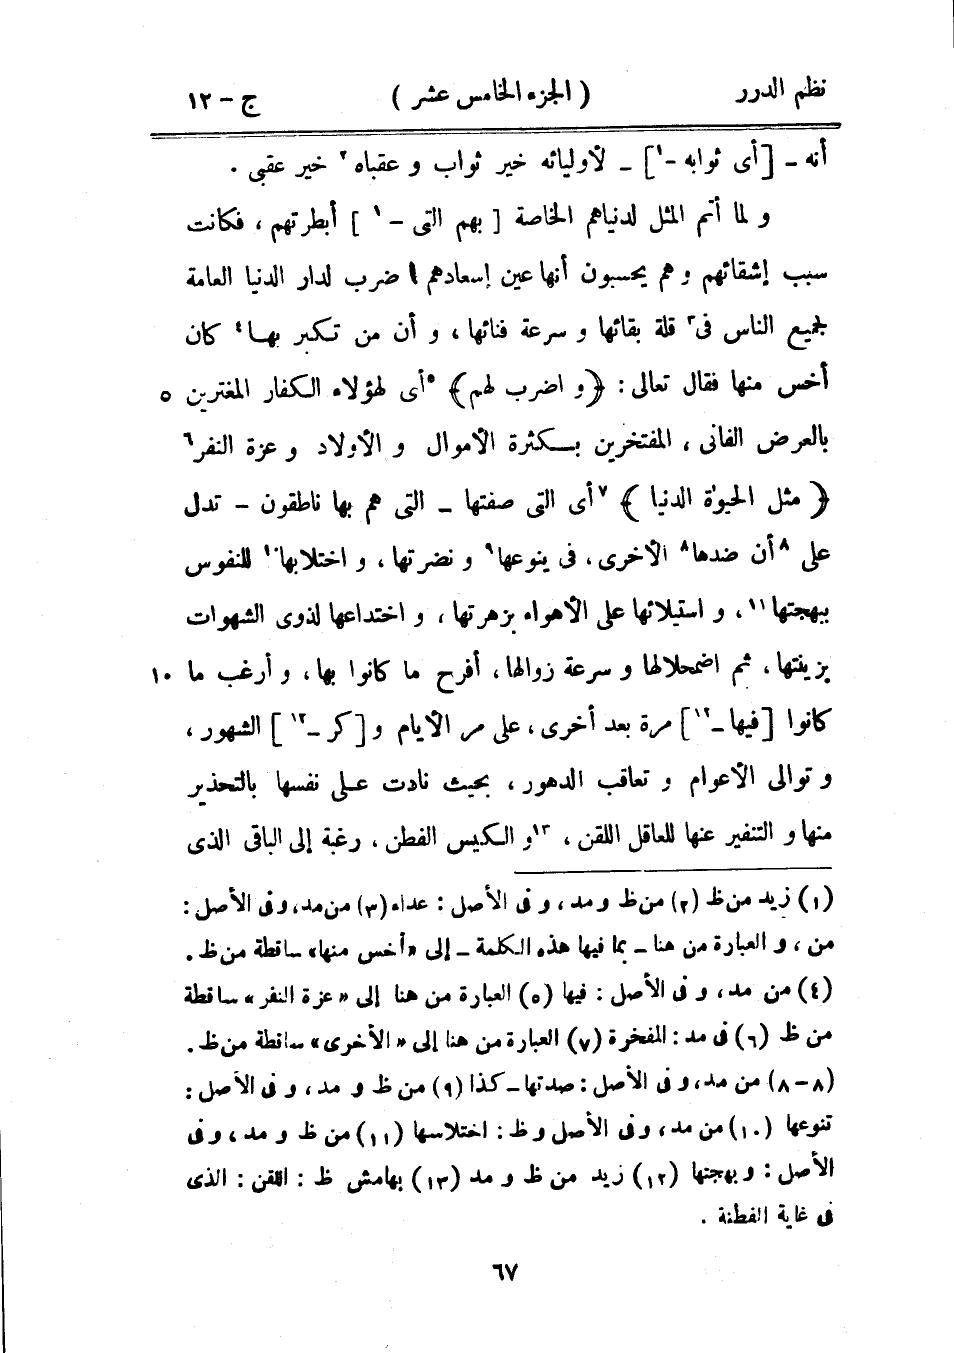 نظم الدرر ( الجزء الخامس عشر ) ج – ١٢
أنه ـ [أى ثوابه -١] ـ لأوليائه خير ثواب و عقباه٢ خير عقبى .
و لما أتم المثل لدنياهم الخاصة [ بهم التى -١ ] أبطرتهم ، فكانت
سبب إشقائهم و هم يحسبون أنها عين إسعادهم ضرب لدار الدنيا العامة
لجميع الناس فى٣ قلة بقائها و سرعة فنائها ، و أن من تكبر بها٤ كان
أخس منها فقال تعالى : ﴿و اضرب لهم﴾ ٥أى لهؤلاء الكفار المغترين ٥
بالعرض الفانى ، المفتخرين بكثرة الأموال و الأولاد و عزة النفر٦
﴿ مثل الحيوٰة الدنيا ﴾ ٧أى التى صفتها ـ التى هم بها ناطقون – تدل
على ٨أن ضدها٨ الأخرى ، فى ينوعها٩ و نضرتها ، و اختلابها١٠ للنفوس
ببهجتها١١ ، و استيلائها على الأهواء بزهرتها ، و اختداعها لذوى الشهوات
بزينتها ، ثم اضمحلالها و سرعة زوالها ، أفرح ما كانوا بها ، و أرغب ما ١٠
كانوا [فيها ـ١٢] مرة بعد أخرى ، على مر الأيام و [كر ـ١٢] الشهور ،
و توالى الأعوام و تعاقب الدهور ، بحيث نادت على نفسها بالتحذير
منها و التنفير عنها للعاقل اللقن ، ١٣و الكيس الفطن ، رغبة إلى الباقى الذى
(١) زيد من ظ (٢) من ظ و مد ، و فى الأصل : عداه (٣) من مد ، و فى الأصل :
من ، و العبارة من هنا ـ بما فيها هذه الكلمة ـ إلى «أخس منها» ساقطة من ظ .
(٤) من مد ، و فى الأصل : فيها (٥) العبارة من هنا إلى « عزة النفر » ساقطة
من ظ (٦) فى مد : المفخرة (٧) العبارة من هنا إلى « الأخرى » ساقطة من ظ .
(٨–٨) من مد ، و فى الأصل : صدتها ـ كذا (٩) من ظ و مد ، و فى الأصل :
تنوعها (١٠) من مد ، و فى الأصل و ظ : اختلاسها (١١) من ظ و مد ، و فى
الأصل : و بهجتها (١٢) زيد من ظ و مد (١٣) بهامش ظ : اللقن : الذى
فى غاية الفطنة .
٦٧